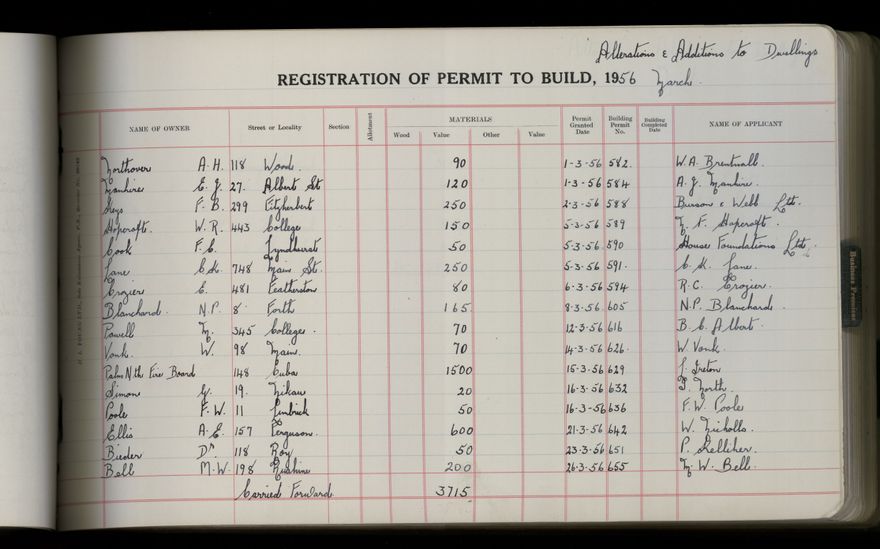 Alterations & Additions to Dwellings
REGISTRATION OF PERMIT TO BUILD, 1956 March.
NAME OF OWNER Street or Locality Section Allotment MATERIALS Permit Granted Date Building Permit No. Building Completed Date NAME OF APPLICANT
Wood Value Other Value
Northover A. H. 118 Wood. 90 1-3-56 582. W A. Brentnall.
Manhire E. J. 27. Albert St 120 1-3-56 584 A. J. Manhire.
F. B. 299 Fitzherbert 250 2-3-56 588 & Webb Ltd.
Hopcroft. W. R. 443 College 150 5-3-56 589 F. Hopcroft.
Cook F. C. Lyndhurst 50 5-3-56 590 House Foundations Ltd.
Lane C. K. 748 Main St. 250 5-3-56 591. C. K. Lane.
Crozier E. 481 Featherston 80 6-3-56 594 R. C. Crozier.
Blanchard. N. P. 8 Forth 165. 8-3-56 605 N. P. Blanchard.
Powell M. 345 College. 70 12-3-56 616 B. C. Albert.
Vonk. W. 98 Main. 70 14-3-56 626. W. Vonk.
Palm Nth Fire Board 148 Cuba 1500 15-3-56 629 Treton
Simons G. 19. Nikau 20 16-3-56 632 North.
Poole F. W. 11 Limbrick 50 16-3-56 636 F. W. Poole
Ellis A. E. 157 Ferguson. 600 21-3-56 642 W. Nicholls.
Bieder Dr. 118 Roy 50 23-3-56 651 P. Kelliher.
Bell M. W. 198 Ruahine 200 26-3-56 655 M. W. Bell.
Carried Forward 3715
Business Premises